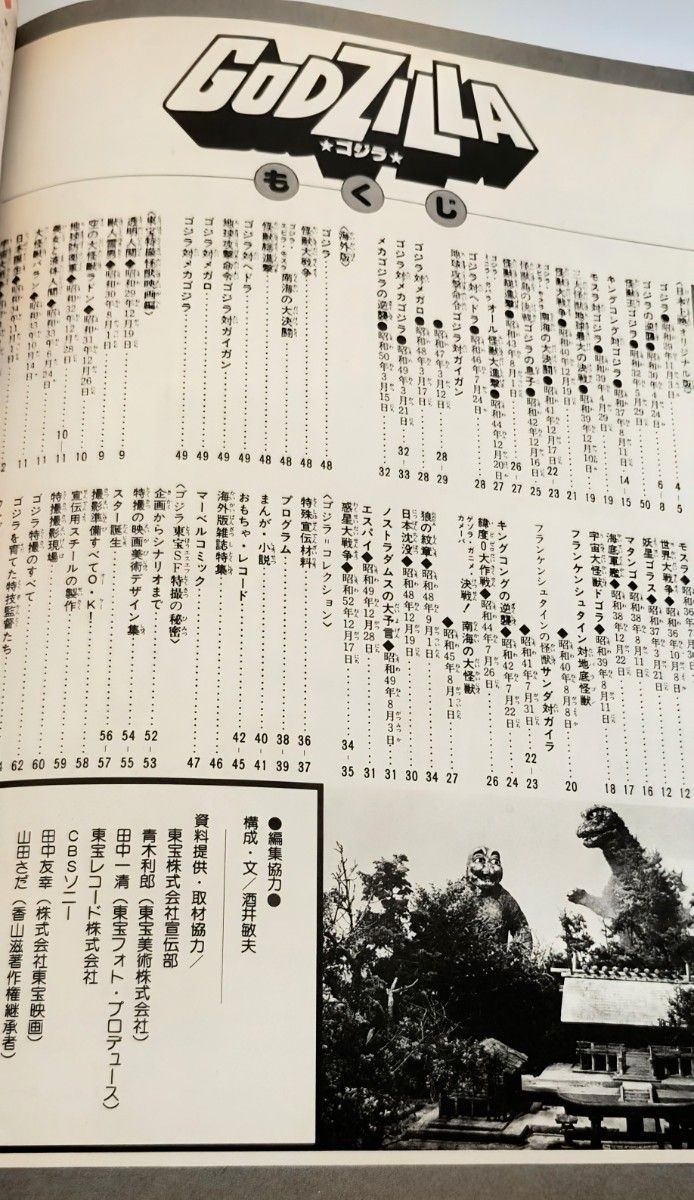 GODZILLA
★ゴジラ★
もくじ
〈日本上映オリジナル版〉
ゴジラ●昭和29年11月3日 4-5
ゴジラの逆襲●昭和30年4月24日 6-8
怪獣王ゴジラ 50
キングコング対ゴジラ●昭和37年8月11日 14-15
モスラ対ゴジラ●昭和39年4月29日 19
三大怪獣 地球最大の決戦●昭和39年12月20日 19
怪獣大戦争●昭和40年12月19日 21
ゴジラ・エビラ・モスラ 南海の大決闘●昭和41年12月17日 22-23
怪獣島の決戦 ゴジラの息子●昭和42年12月16日 25
怪獣総進撃●昭和43年8月1日 26-27
ゴジラ・ミニラ・ガバラ オール怪獣大進撃●昭和44年12月20日 27
ゴジラ対ヘドラ●昭和46年7月24日 28
地球攻撃命令 ゴジラ対ガイガン
●昭和47年3月12日 28-29
ゴジラ対メガロ●昭和48年3月17日 28
ゴジラ対メカゴジラ●昭和49年3月21日 32-33
メカゴジラの逆襲●昭和50年3月15日 32
〈海外版〉
ゴジラ 48
怪獣大戦争 48
ゴジラ・エビラ・モスラ 南海の大決闘 48
怪獣総進撃 48
ゴジラ対ヘドラ 49
地球攻撃命令 ゴジラ対ガイガン 49
ゴジラ対メガロ 49
ゴジラ対メカゴジラ 49
〈東宝特撮怪獣映画編〉
透明人間◆昭和29年12月29日 9
獣人雪男◆昭和30年8月14日 9
空の大怪獣ラドン◆昭和31年12月26日 10
地球防衛軍◆昭和32年12月28日 10
美女と液体人間◆昭和33年6月24日 10-11
大怪獣バラン◆昭和33年10月14日 11
日本誕生◆昭和34年11月1日 11
モスラ◆昭和36年7月30日 12
世界大戦争◆昭和36年10月8日 12
妖星ゴラス◆昭和37年3月21日 16
マタンゴ◆昭和38年8月11日 17
海底軍艦◆昭和38年12月22日 18
宇宙大怪獣ドゴラ◆昭和39年8月11日
フランケンシュタイン対地底怪獣
◆昭和40年8月8日 20
フランケンシュタインの怪獣サンダ対ガイラ
◆昭和41年7月31日 22-23
キングコングの逆襲◆昭和42年7月22日 24
緯度0大作戦◆昭和44年7月26日 26
ゲゾラ・ガニメ・カメーバ 決戦! 南海の大怪獣
◆昭和45年8月1日 27
狼の紋章◆昭和48年9月1日 34
日本沈没◆昭和48年12月29日 30
ノストラダムスの大予言◆昭和49年8月3日 31
エスパイ◆昭和49年12月28日 31
惑星大戦争◆昭和52年12月17日 34-35
〈ゴジラ=コレクション〉
特殊宣伝材料 36-37
プログラム 38-39
まんが・小説 40-41
おもちゃ・レコード 42-45
海外版雑誌特集 46
マーベルコミック 47
〈ゴジラ東宝SF特撮の秘密〉
企画からシナリオまで 52-53
特撮の映画美術デザイン集 54-55
スター誕生
撮影準備すべてO・K! 56-57
宣伝用スチールの製作 58
特撮撮影現場 59
ゴジラ特撮のすべて 60
ゴジラを育てた特技監督たち 62
●編集協力●
構成・文/酒井敏夫
資料提供・取材協力/
東宝株式会社宣伝部
青木利郎(東宝美術株式会社)
田中一清(東宝フォト・プロデュース)
東宝レコード株式会社
CBSソニー
田中友幸(株式会社東宝映画)
山田さだ(香山滋著作権継承者)